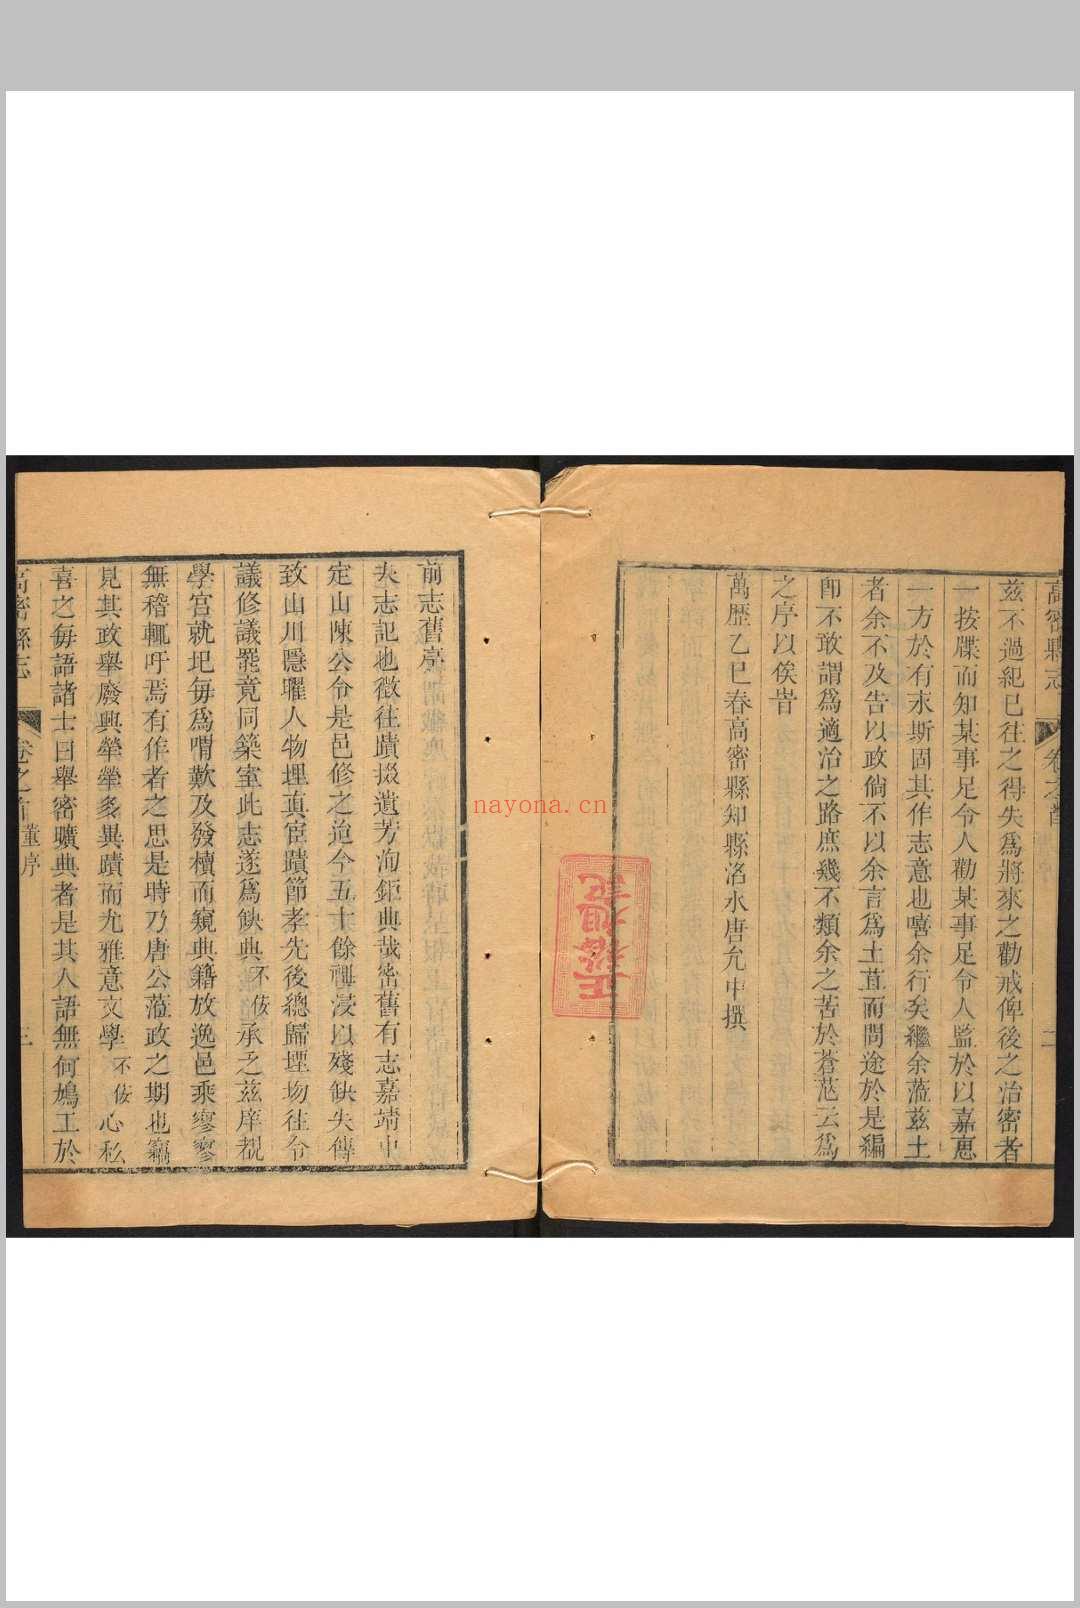 高密縣志 卷之首 二
茲不過紀已往之得失爲將來之勸戒俾後之治密者
一按牒而知某事足令人勸某事足令人監於以嘉惠
一方於有永斯固其作志意也噫余行矣繼余蒞茲土
者余不及告以政倘不以余言爲土苴而問途於是編
卽不敢謂爲適治之路庶幾不類余之苦於蒼茫云爲
之序以俟昔
萬歷乙巳春高密縣知縣洺水唐允中撰
前志舊序
夫志記也徵往蹟掇遺芳洵鉅典哉密舊有志嘉靖中
定山陳公令是邑修之迨今五十餘禩浸以殘缺失傳
致山川隱曜人物埋眞宦蹟節孝先後總歸堙坳往令
議修議罷竟同築室此志遂爲缺典不佞承乏茲庠覩
學宮就圯每爲喟歎及發櫝而窺典籍放逸邑乘寥寥
無稽輒吁焉有作者之思是時乃唐公蒞政之期也竊
見其政舉廢興犖犖多異蹟而尤雅意文學不佞心私
喜之每語諸士曰舉密曠典者是其人語無何鳩工於
高密縣志 卷之首 董序 三
nayona.cn